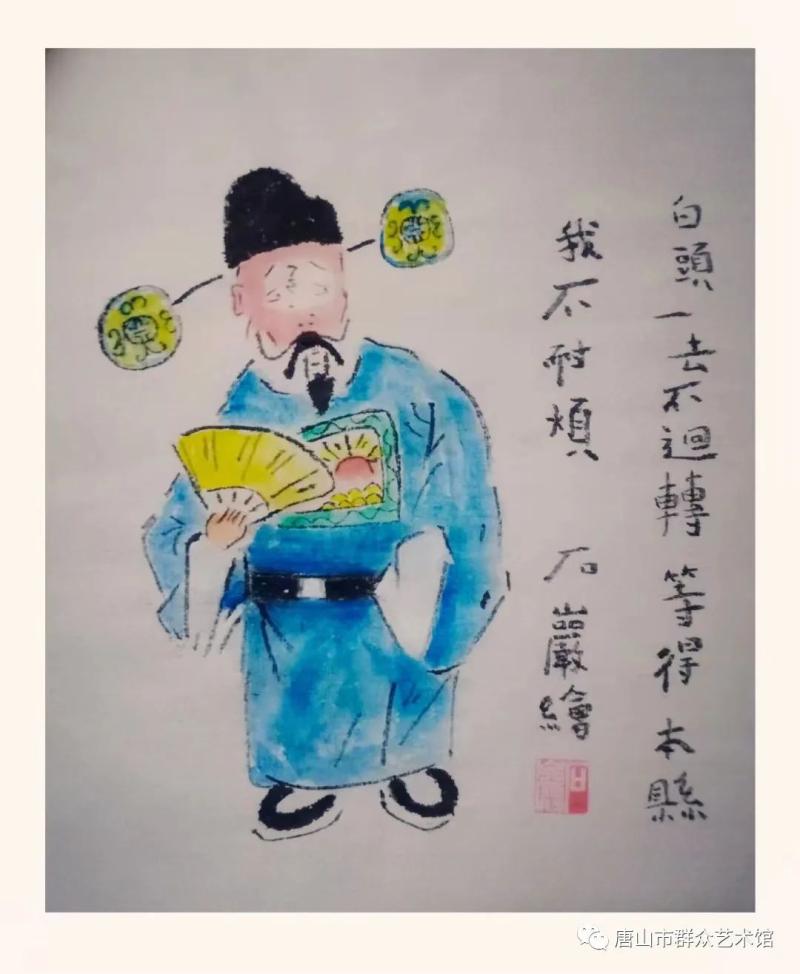 白頭一去不迴轉等得本縣
我不耐煩 石巖繪
唐山市群众艺术馆